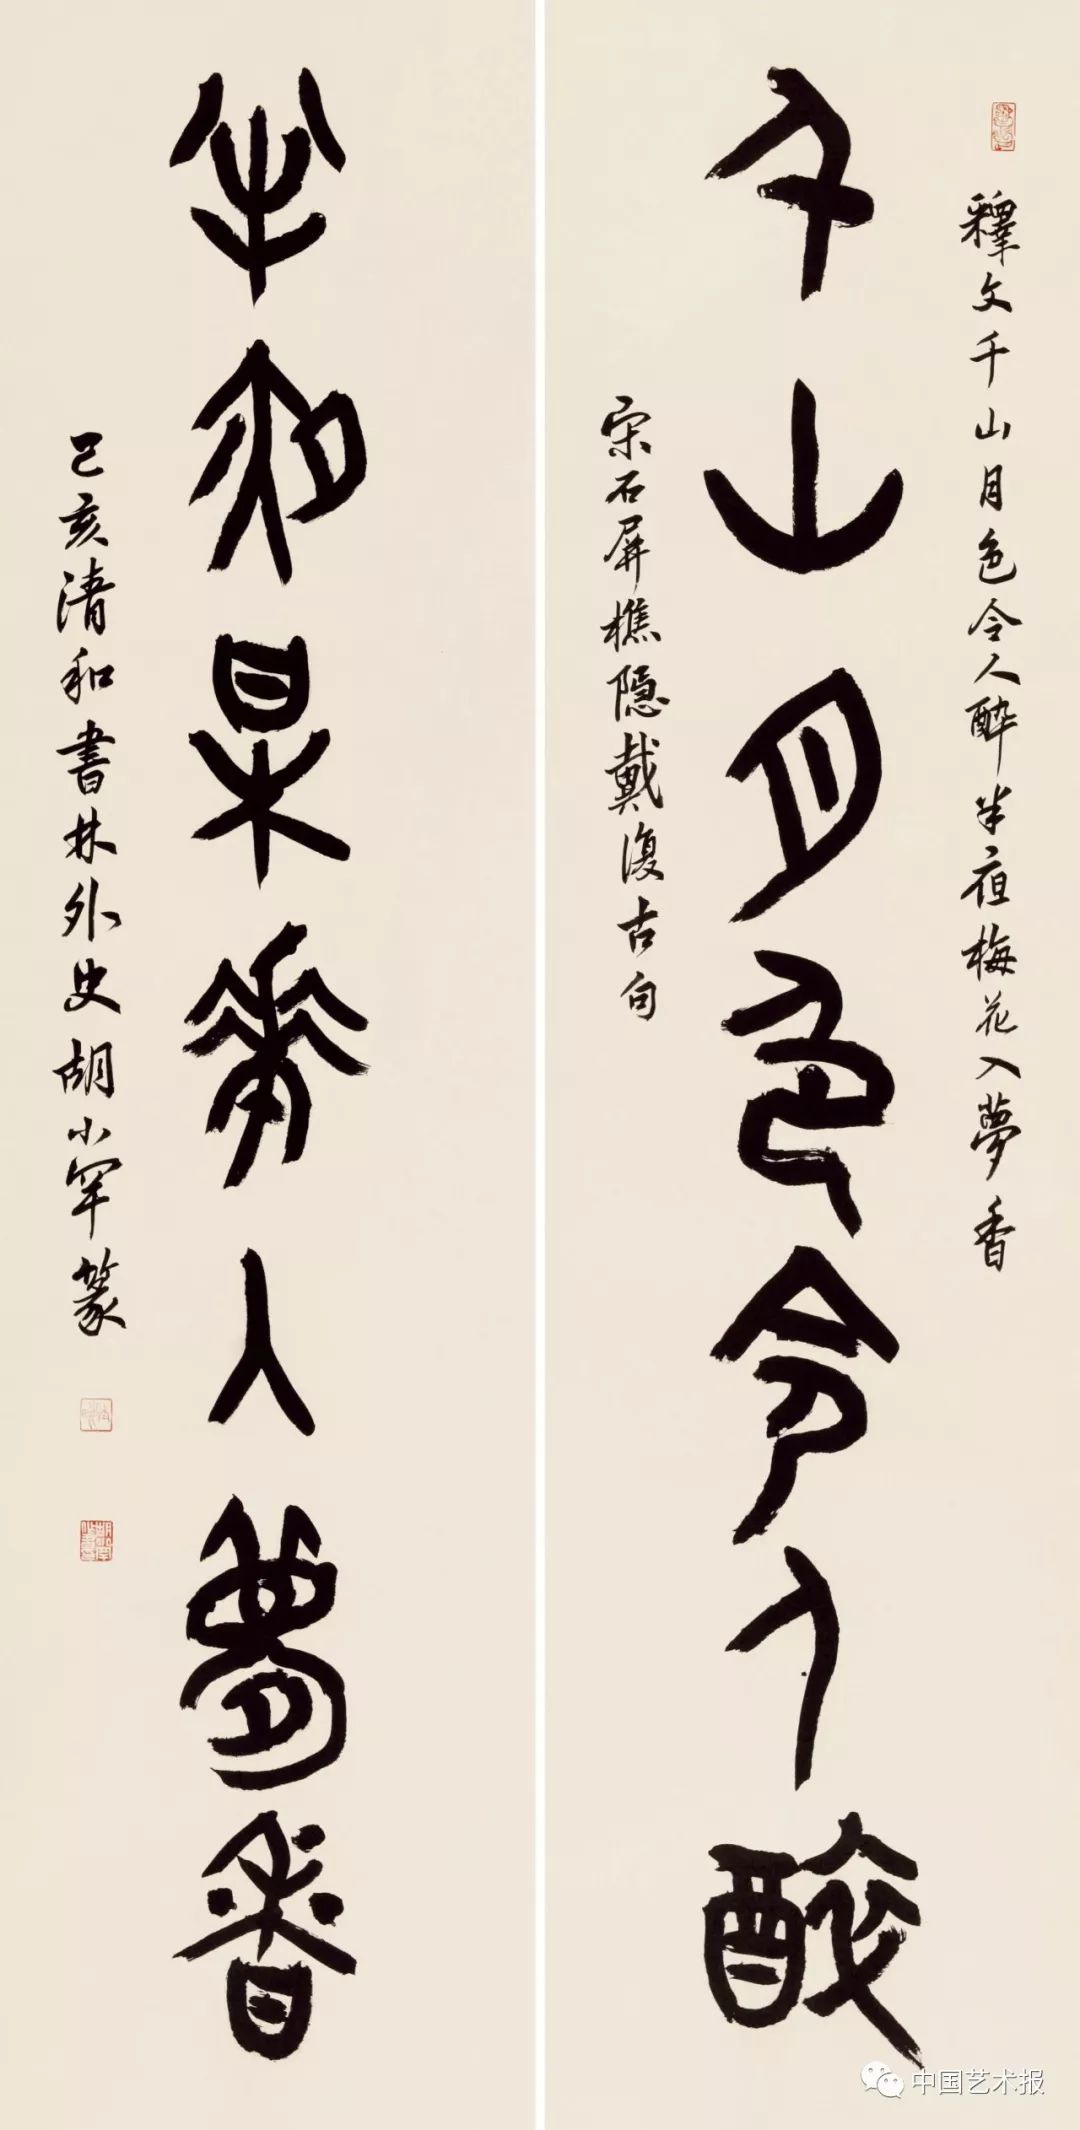 釋文千山月色令人醉半夜梅花入夢香
千山月色令人醉
宋石屏樵隐戴復古句
半夜某華入夢香
己亥清和書林外史胡小罕篆
中国艺术报